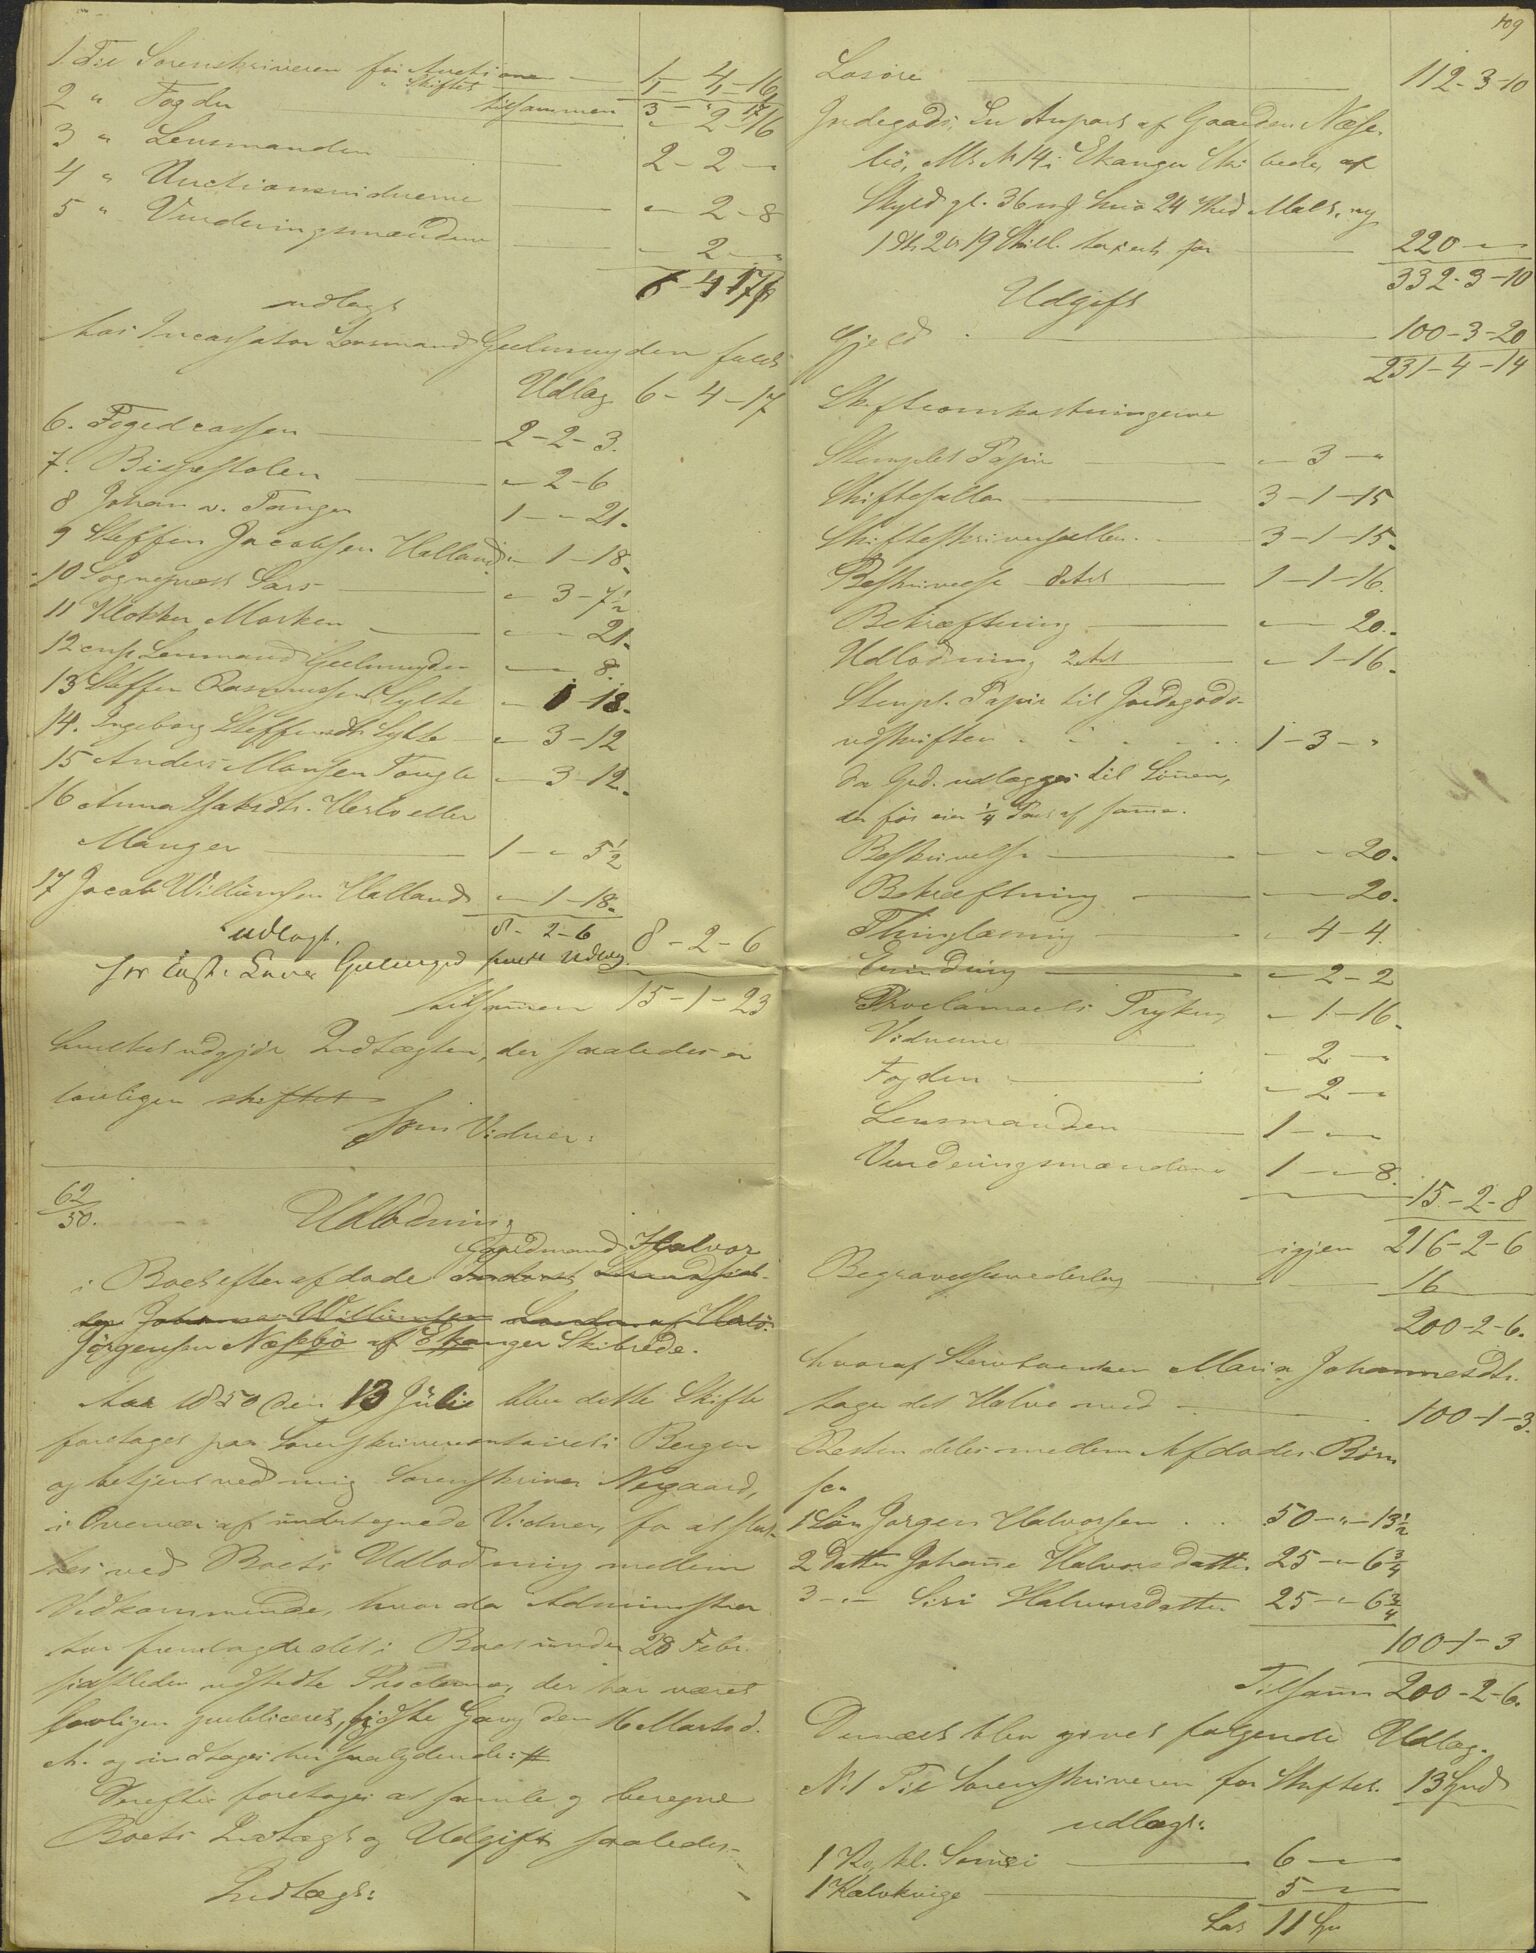 1 Til Sorenskriveren for Auctionen — 1 - 4 - 16
" Skiftet — 1 - 4 - 16
tilsammen 3 - " - 17
2 " Fogden — " - 2 - 16
3 " Lensmanden — 2 - 2 - "
4 " Auctionsvidnerne — " - 2 - 8
5 " Vurderingsmændene — " - 2 - "
6 - 4 - 17
udlagt
hos Incassator Lensmand Geelmuyden fuldt
Udlæg 6 - 4 - 17
6. Fogedcassen — 2 - 2 - 3.
7. Bispestolen — " - 2 - 6
8 Johan v. Tangen 1 - " - 21.
9 Steffen Jacobsen Halland " - 1 - 18.
10 Sognepræst Sars — " - 3 - 7 1/2
11 Klokker Morken — " - " - 21.
12 csf. Lensmand Geelmuyden " - " - 8.
13 Steffen Rasmussen Sylte " - 1 - 18.
14. Ingeborg Steffensdtr Sylte " - 3 - 12
15 Anders Monsen Tougle " - 3 - 12.
16 Anna Isaksdtr. Herlø eller
Manger — 1 - " - 5 1/2
17 Jacob Willumsen Halland " - 1 - 18.
8 - 2 - 6
udlagt.
hos Geelmuyd fuldt Udlæg 8 - 2 - 6
tilsammen 15 - 1 - 23
hvilket udgjør Indtægten, der saaledes er
lovligen skiftet
Som Vidner:
62/50.
Udlodning
Gaardmand Halvor
i Boet efter afdøde
Jørgensen Næsbø af Ekanger Skibrede.
Aar 1850 den 13 Juli blev dette Skifte
foretaget paa Sorenskrivercontoiret i Bergen
og betjent ved mig Sorenskriver Nergaard,
i Overvær af undertegnede Vidner, for at slut-
tes ved Boets Udlodning mellem
Vedkommende, hvor da Administra
tor fremlagde det i Boet under 28 Febr.
sidstleden udstedte Proclama, der har været
lovligen publiceret, sidste Gang den 16 Marts d.
A. og indtages her saalydende: #
Derefter foretages at samle og beregne
Boets Indtægt og Udgift saaledes
Indtægt:
109
Løsøre — 112 - 3 - 10
Jordegods: En Anpart af Gaarden Næse-
bø, Mt. N 14 i Ekanger Skibrede, af
Skyld gl. 36 mk Smør 24 Mkd Malt, ny
1 Dlr 2 Ort 19 Skill. taxeret for — 220 - " - "
332 - 3 - 10
Udgift
Gjeld — 100 - 3 - 20
231 - 4 - 14
Skifteomkostningerne
Stemplet Papir — " - 3 - "
Skiftesallær — 3 - 1 - 15
Skifteskriversallær. — 3 - 1 - 15.
Beskrivelse 8 Ark — 1 - 1 - 16.
Bekræftning — " - " - 20.
Udlodning 2 Ark — " - 1 - 16.
Stempl. Papir til Jordegods-
udskriften . . . . . 1 - 3 - "
da Jrd. udlægges til Sønen,
der før eier 1/4 Part af samme.
Beskrivelse — " - " - 20.
Bekræftning — " - " - 20.
Thinglæsning — " - 4 - 4.
— " - 2 - 2
Proclamaets Trykning " - 1 - 16.
Vidnerne — " - 2 - "
Fogden — " - 2 - "
Lensmanden — 1 - " - "
Vurderingsmændene — 1 - " - 8.
15 - 2 - 8
igjen 216 - 2 - 6
Begravelsesvederlag — 16 — "
200 - 2 - 6.
hvoraf Stervboenken Maria Johannesdtr.
tager det Halve med — 100 - 1 - 3.
Resten deles mellem Afdødes Børn
saa
1 Søn Jørgen Halvorsen . . . 50 - " - 13 1/2
2 Datter Johanne Halvorsdatter 25 - " - 6 3/4
3 - " - Siri Halvorsdatter 25 - " - 6 3/4
100 - 1 - 3
Tilsamm 200 - 2 - 6.
Dernæst blev givet følgende Udlæg.
N. 1 Til Sorenskriveren for Skiftet. 13
udlægt:
1 Ko, kl. Sommei — 6 - " - "
1 Kalvkvige — 5 - " - "
Lat. 11